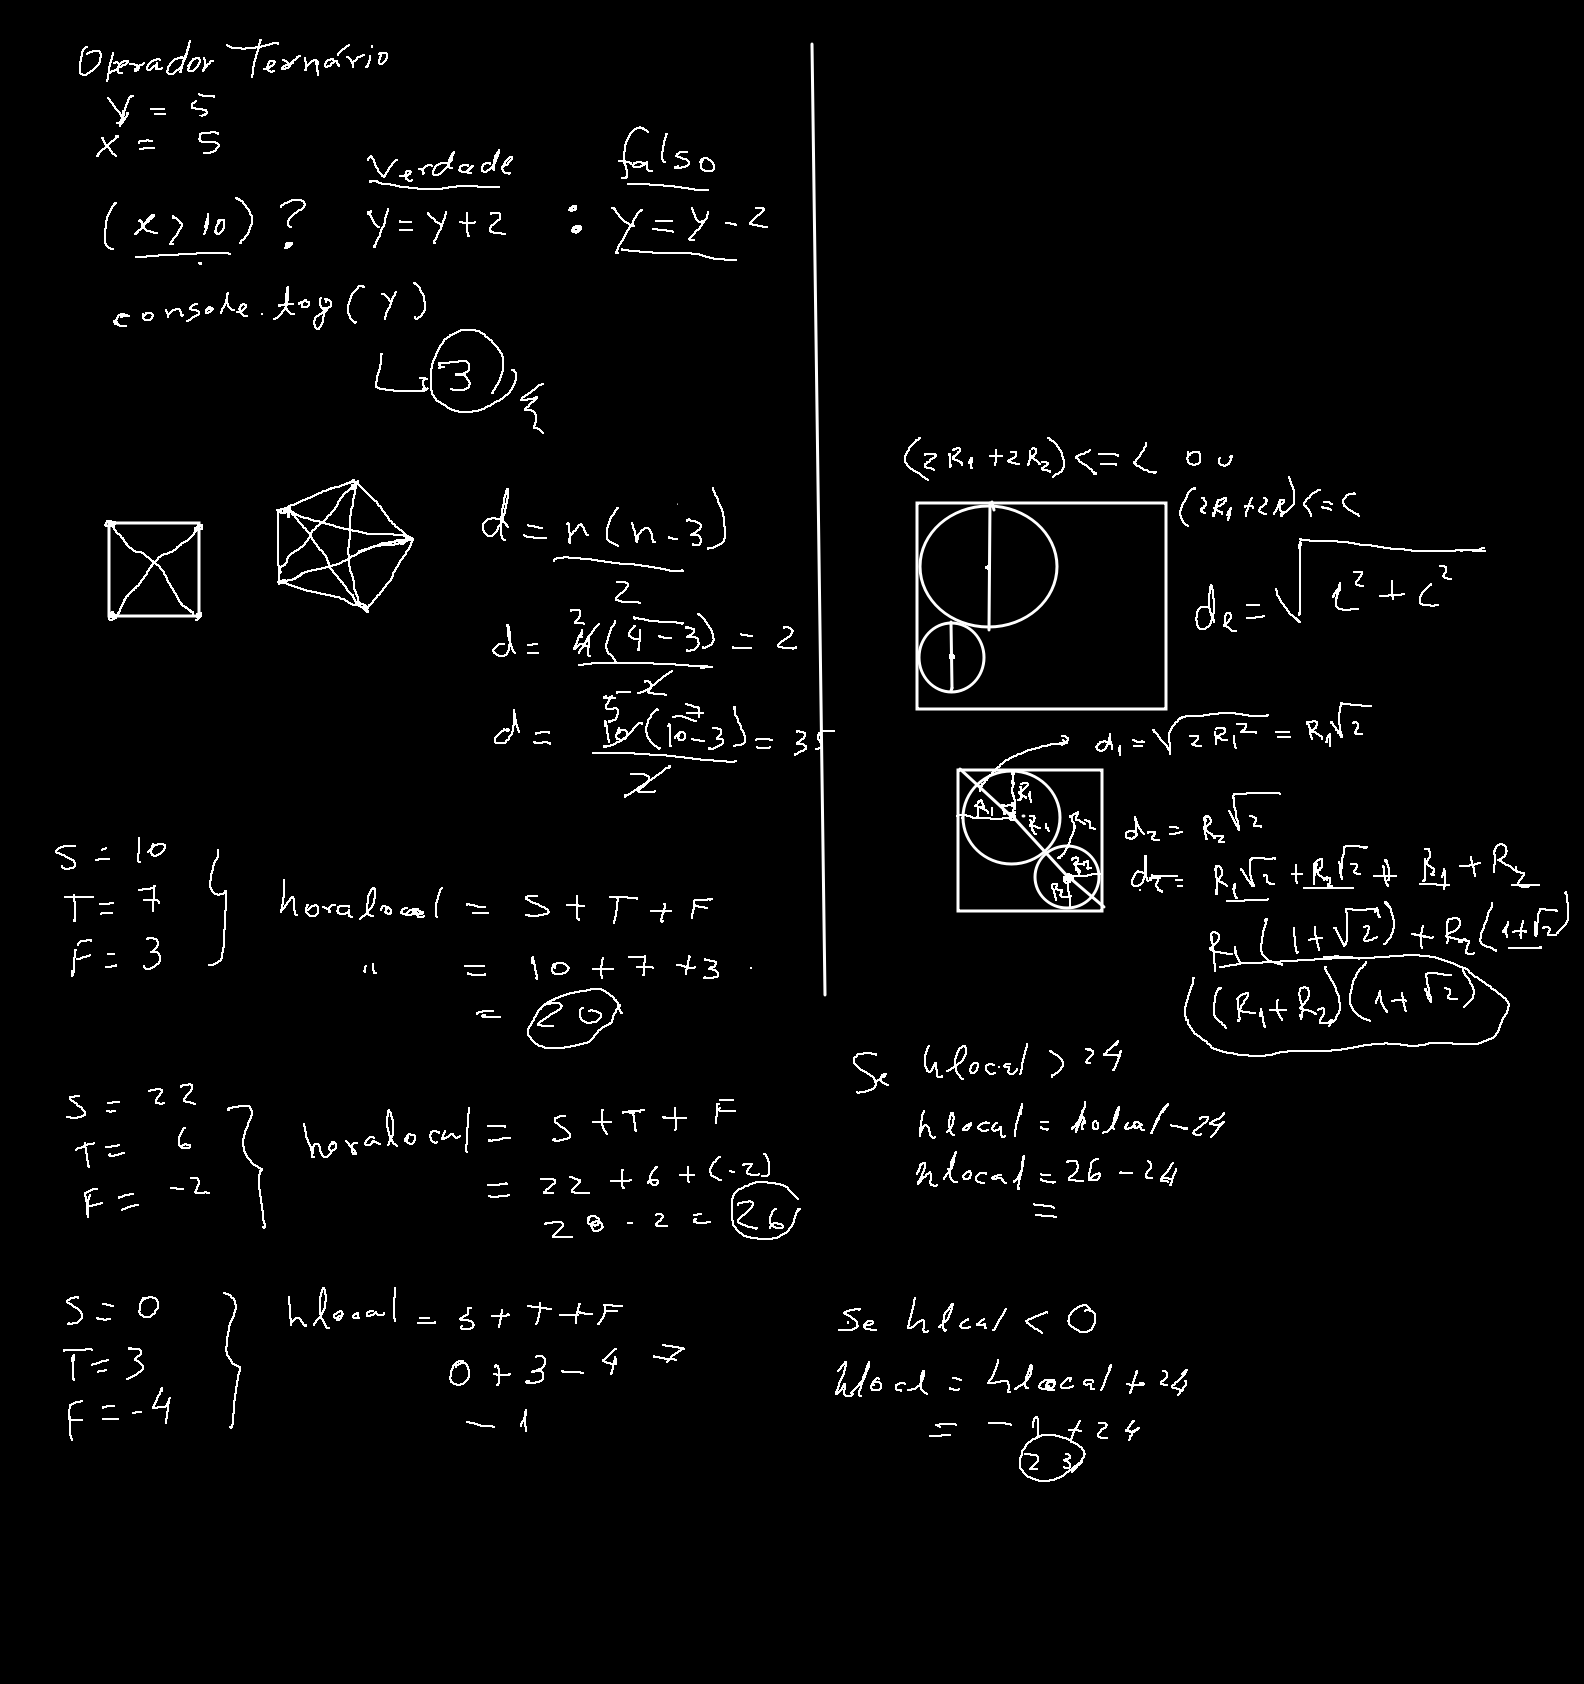 Operador Ternário
y = 5
x = 5
verdade falso
(x > 10) ? y = y + 2 : y = y - 2
console.log(y)
3
d = n(n-3)
2
d = 4(4-3) = 2
2
2
5 7
d = 10(10-3) = 35
2
S = 10
T = 7
F = 3
horalocal = S + T + F
" = 10 + 7 + 3
= 20
S = 22
T = 6
F = -2
horalocal = S + T + F
= 22 + 6 + (-2)
28 - 2 = 26
S = 0
T = 3
F = -4
hlocal = S + T + F
0 + 3 - 4
- 1
(2R1 + 2R2) <= L ou
(2R1 + 2R) <= C
dR = √L² + C²
d1 = √2R1² = R1√2
R1
R1
R1
R2
R2
R2
d2 = R2√2
dT = R1√2 + R2√2 + R1 + R2
R1(1+√2) + R2(1+√2)
(R1+R2)(1+√2)
Se hlocal > 24
hlocal = holcal - 24
hlocal = 26 - 24
=
Se hlcal < 0
hlocal = hlocal + 24
= - 1 + 24
23